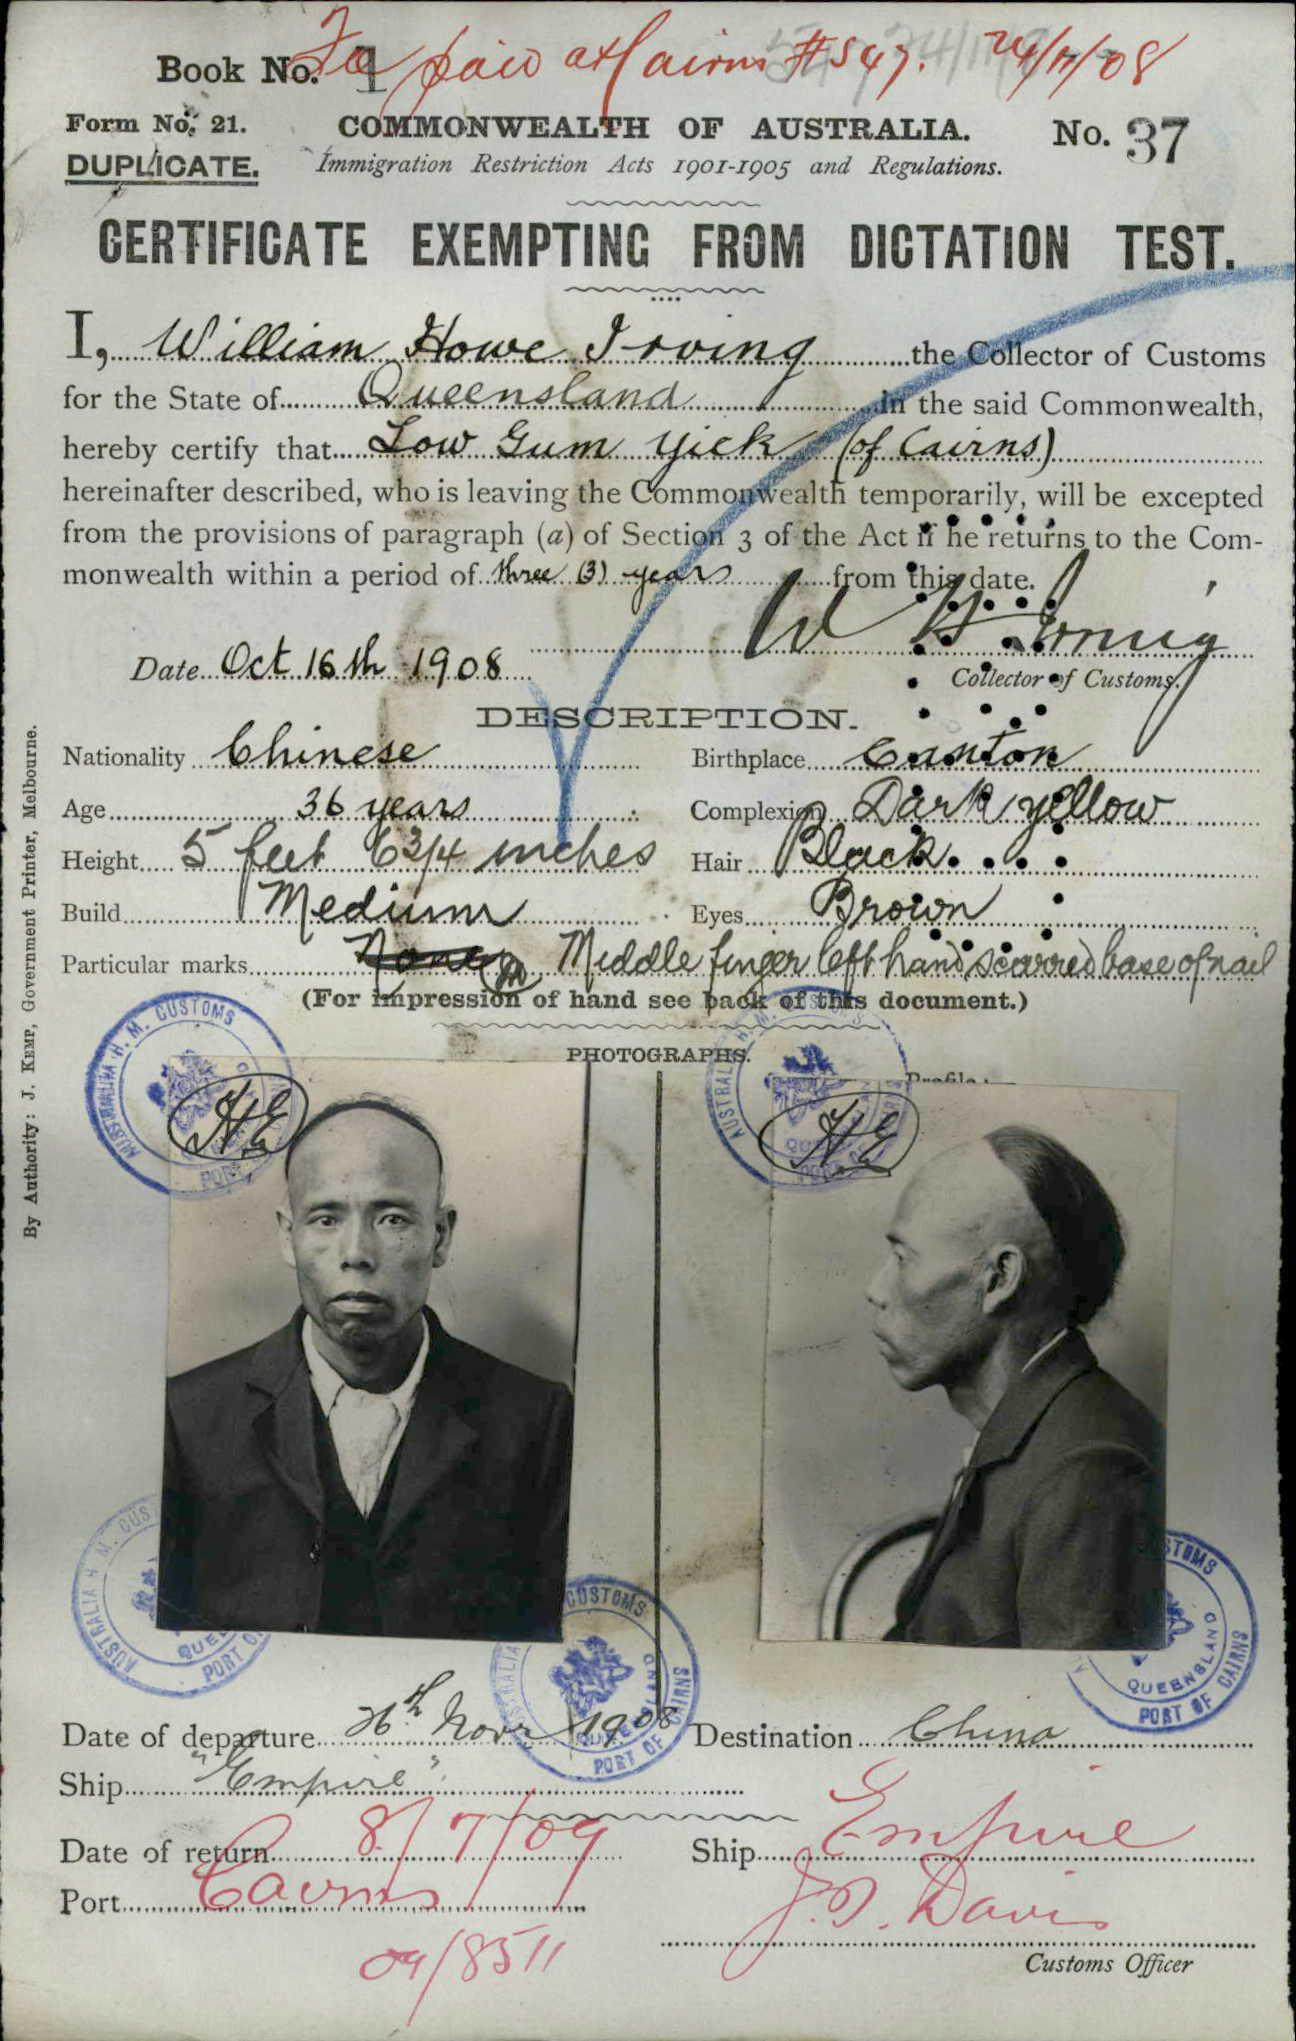 Book No. 1 Fee paid at Cairns #547. 24/11/08
Form No. 21. COMMONWEALTH OF AUSTRALIA. No. 37
DUPLICATE. Immigration Restriction Acts 1901-1905 and Regulations.
CERTIFICATE EXEMPTING FROM DICTATION TEST.
I, William Howe Irving the Collector of Customs
for the State of Queensland in the said Commonwealth,
hereby certify that Low Gum Yick (of Cairns)
hereinafter described, who is leaving the Commonwealth temporarily, will be excepted
from the provisions of paragraph (a) of Section 3 of the Act if he returns to the Com-
monwealth within a period of three (3) years from this date.
W H Irving
Date Oct 16th 1908
Collector of Customs.
DESCRIPTION.
Nationality Chinese Birthplace Canton
Age 36 years Complexion Dark yellow
Height 5 feet 6 3/4 inches Hair Black
Build Medium Eyes Brown
Particular marks None Middle finger left hand scarred base of nail
(For impression of hand see back of this document.)
PHOTOGRAPHS.
Profile:
By Authority: J. KEMP, Government Printer, Melbourne.
AUSTRALIA H. M. CUSTOMS
PORT
HE
AUSTRALIA H. M. CUSTOMS
HE
AUSTRALIA H. M. CUS
PORT O
CUSTOMS
AUSTRALIA
QUEENSLAND
PORT OF CAIRNS
STOMS
QUEENSLAND
PORT OF CAIRNS
Date of departure 26th Novr 1908 Destination China
Ship "Empire"
Date of return 8/7/09 Ship Empire
Port Cairns J. D. Davis
09/8511
Customs Officer